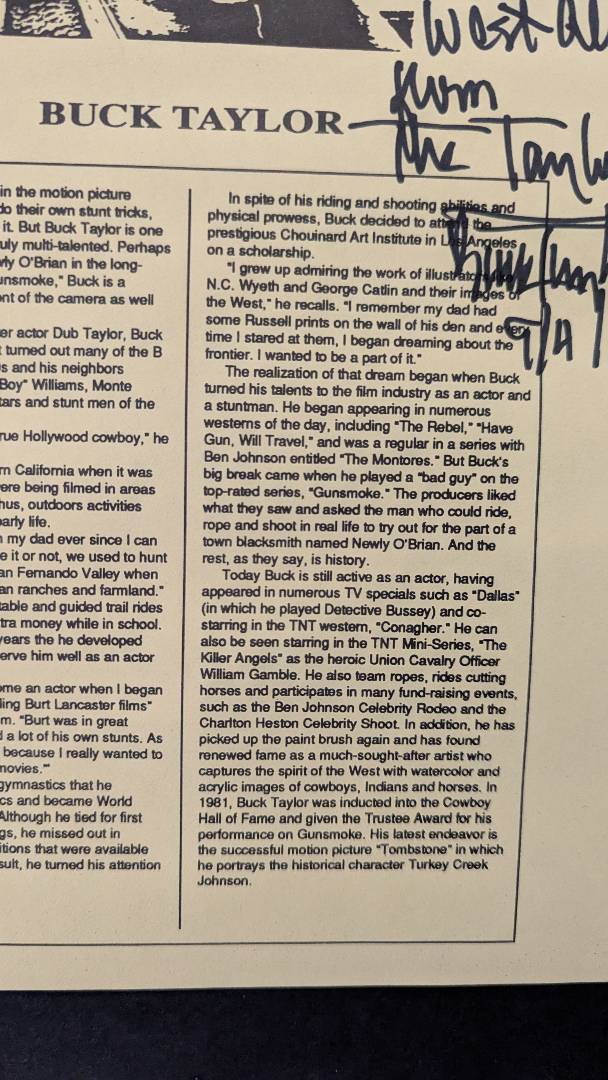 West
from
the Taylor
BUCK TAYLOR
in the motion picture
do their own stunt tricks,
it. But Buck Taylor is one
uly multi-talented. Perhaps
wly O'Brian in the long-
unsmoke," Buck is a
nt of the camera as well
er actor Dub Taylor, Buck
turned out many of the B
s and his neighbors
Boy" Williams, Monte
tars and stunt men of the
rue Hollywood cowboy," he
rn California when it was
ere being filmed in areas
hus, outdoors activities
early life.
my dad ever since I can
e it or not, we used to hunt
an Fernando Valley when
an ranches and farmland."
table and guided trail rides
tra money while in school.
years the he developed
erve him well as an actor
ome an actor when I began
ling Burt Lancaster films"
m. "Burt was in great
d a lot of his own stunts. As
because I really wanted to
movies.'"
gymnastics that he
cs and became World
Although he tied for first
gs, he missed out in
itions that were available
sult, he turned his attention
In spite of his riding and shooting abilities and
physical prowess, Buck decided to attend the
prestigious Chouinard Art Institute in Los Angeles
on a scholarship.
"I grew up admiring the work of illustrators like
N.C. Wyeth and George Catlin and their images of
the West," he recalls. "I remember my dad had
some Russell prints on the wall of his den and every
time I stared at them, I began dreaming about the
frontier. I wanted to be a part of it."
The realization of that dream began when Buck
turned his talents to the film industry as an actor and
a stuntman. He began appearing in numerous
westerns of the day, including "The Rebel," "Have
Gun, Will Travel," and was a regular in a series with
Ben Johnson entitled "The Montores." But Buck's
big break came when he played a "bad guy" on the
top-rated series, "Gunsmoke." The producers liked
what they saw and asked the man who could ride,
rope and shoot in real life to try out for the part of a
town blacksmith named Newly O'Brian. And the
rest, as they say, is history.
Today Buck is still active as an actor, having
appeared in numerous TV specials such as "Dallas"
(in which he played Detective Bussey) and co-
starring in the TNT western, "Conagher." He can
also be seen starring in the TNT Mini-Series, "The
Killer Angels" as the heroic Union Cavalry Officer
William Gamble. He also team ropes, rides cutting
horses and participates in many fund-raising events,
such as the Ben Johnson Celebrity Rodeo and the
Charlton Heston Celebrity Shoot. In addition, he has
picked up the paint brush again and has found
renewed fame as a much-sought-after artist who
captures the spirit of the West with watercolor and
acrylic images of cowboys, Indians and horses. In
1981, Buck Taylor was inducted into the Cowboy
Hall of Fame and given the Trustee Award for his
performance on Gunsmoke. His latest endeavor is
the successful motion picture "Tombstone" in which
he portrays the historical character Turkey Creek
Johnson.